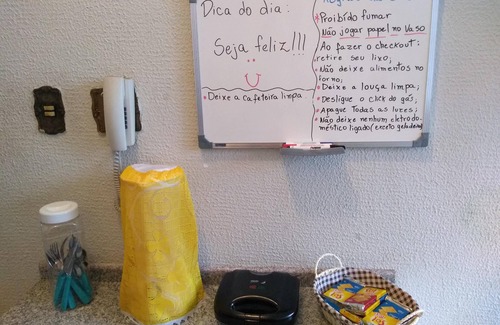 Dica do dia:
Seja feliz!!!
* Deixe a cafeteira limpa
* Proibido fumar
Não jogar papel no vaso
Ao fazer o checkout:
retire seu lixo;
Não deixe alimentos no
forno;
Deixe a louça limpa;
Desligue o click do gás;
Apague todas as luzes;
Não deixe nenhum eletrodo-
méstico ligado (exceto geladeira)